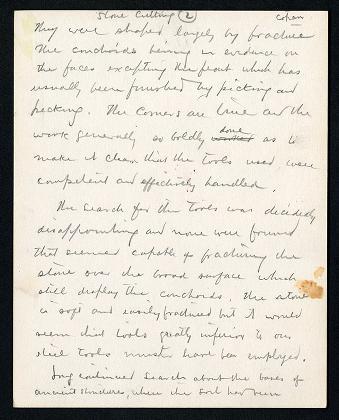 Stone Cutting (2) Copan
They were shaped largely by fracture
the conchoids being in evidence on
the faces excepting the front which has
usually been finished by picking and
pecking. The corners are true and the
work generally so boldly done as to
make it clear that the tools used were
competent and effectively handled.
The search for the tools was decidedly
disappointing and none were found
that seemed capable of fracturing the
stone over the broad surface which
still display the conchoids. The stone
is soft and easily fractured but it would
seem that tools greatly inferior to our
steel tools must have been employed.
Long continued search about the bases of
ancient structures, where the soil has been